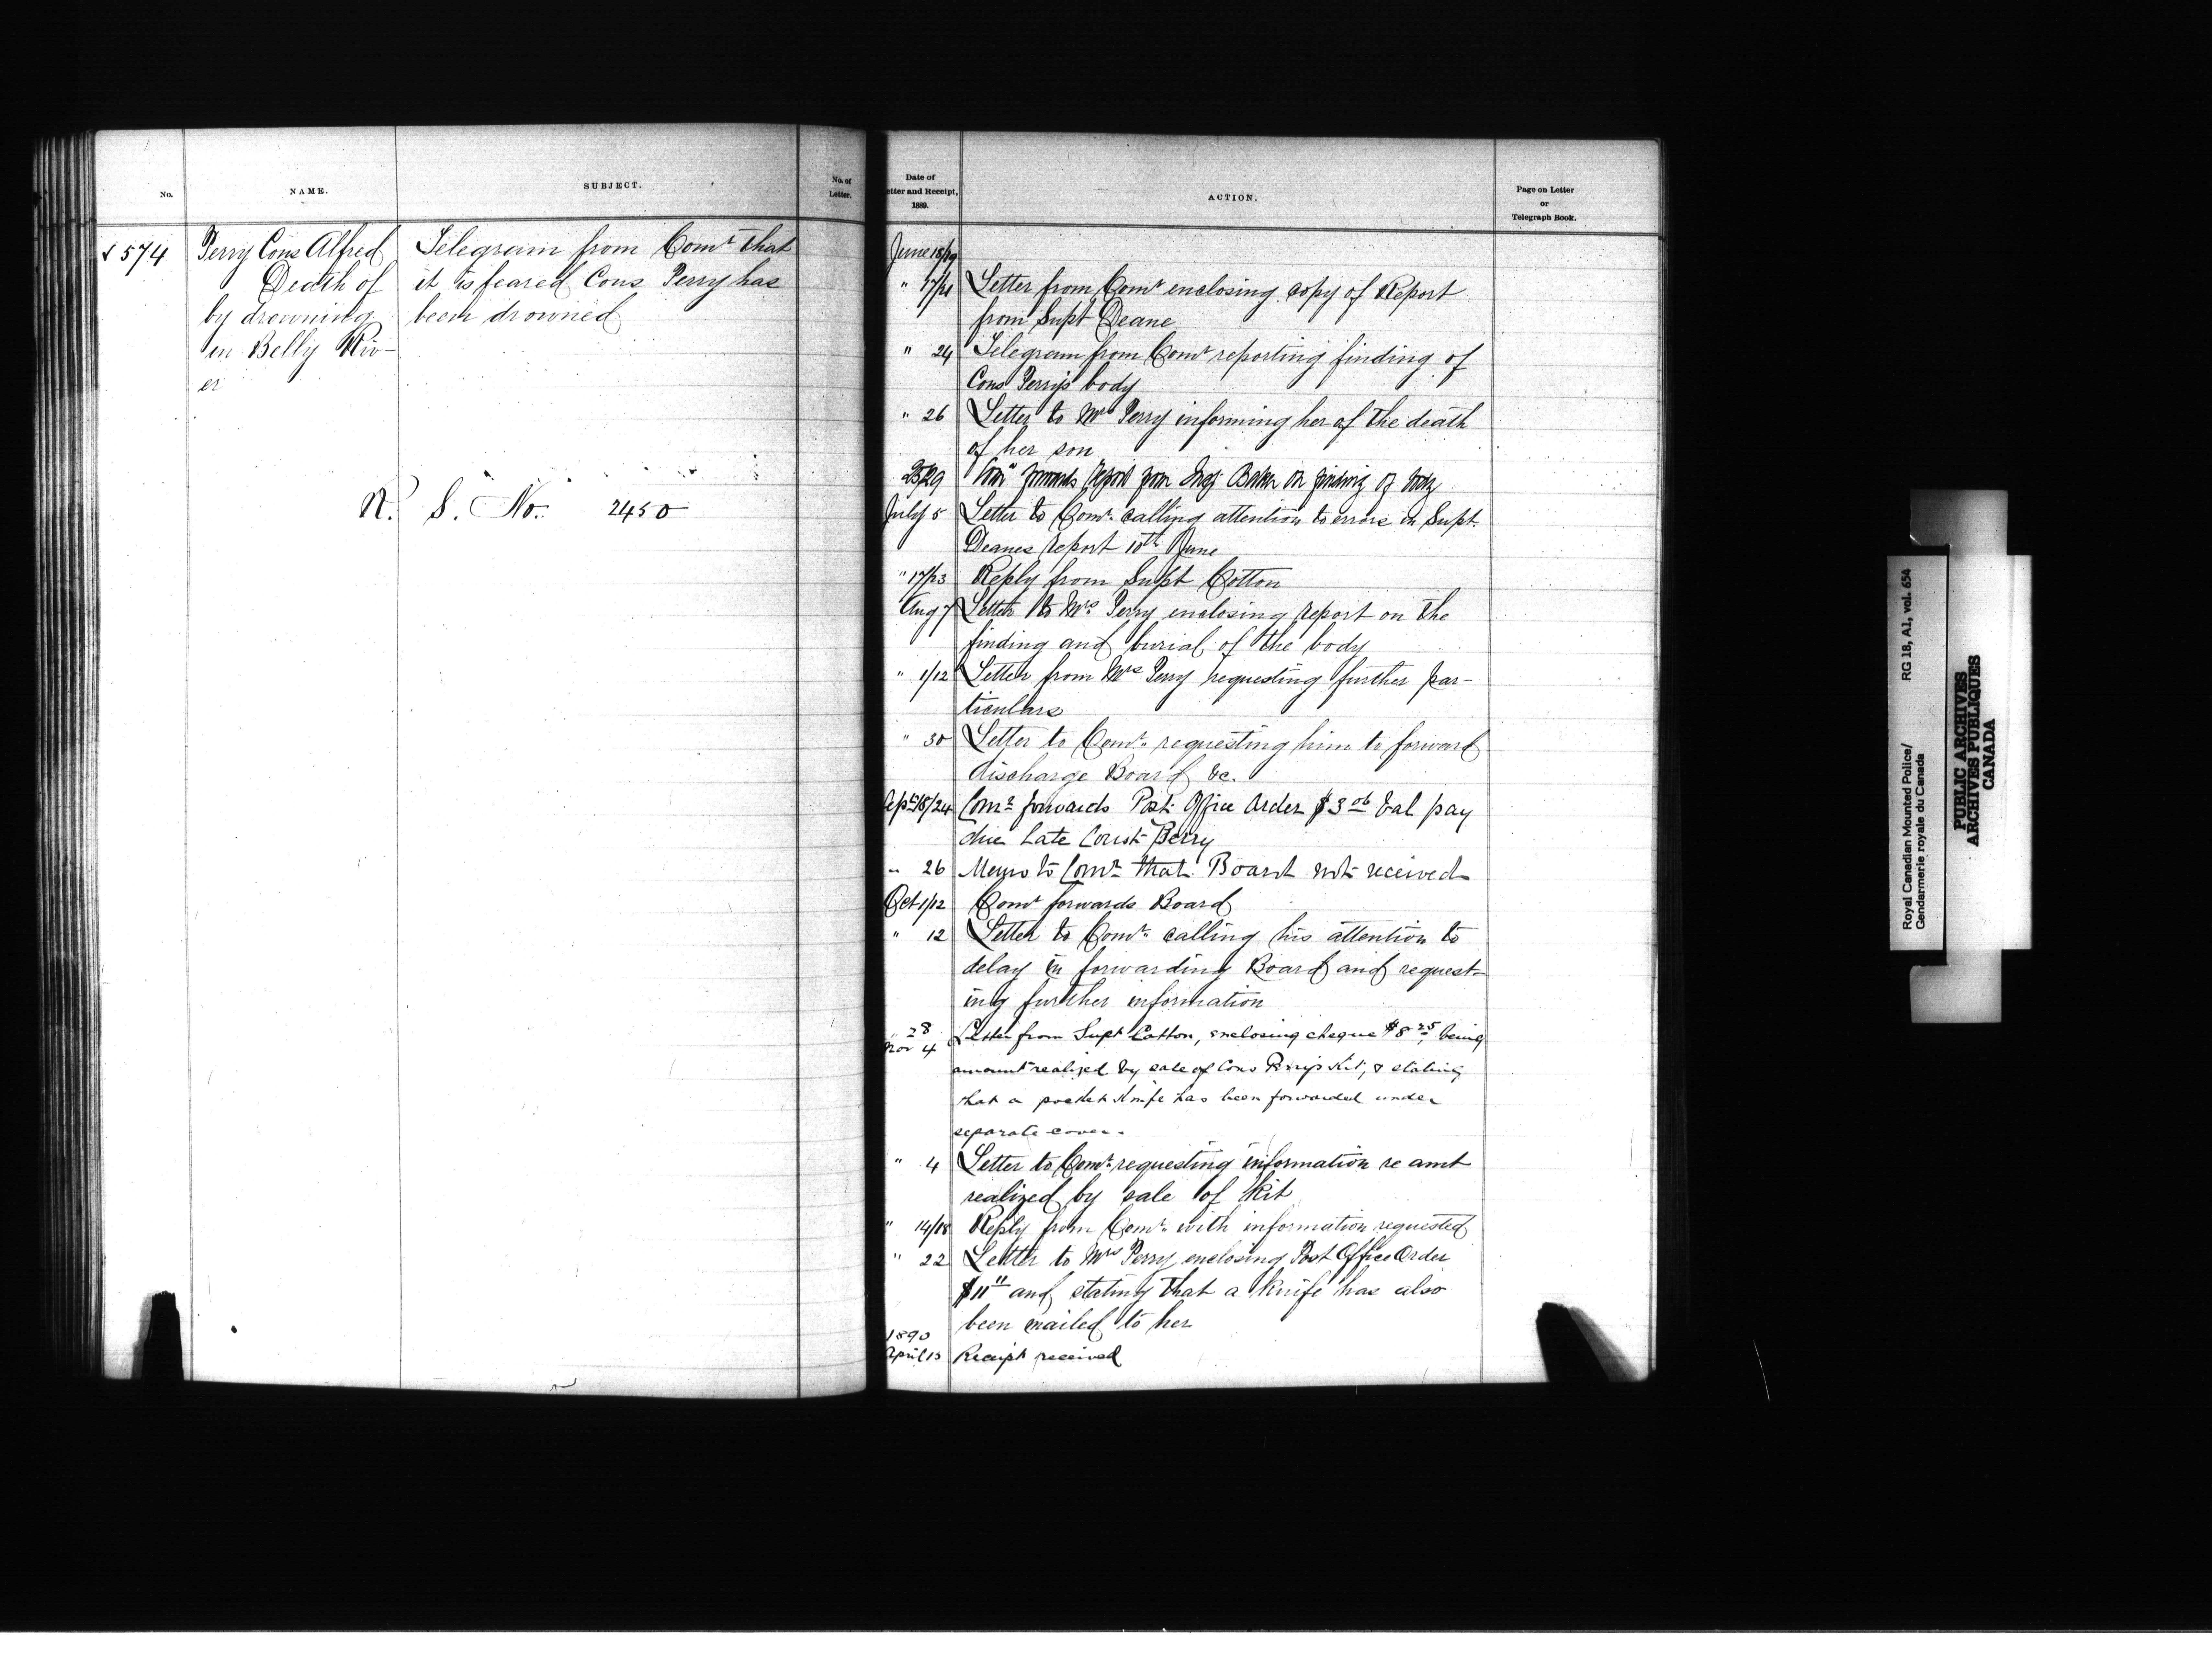 No.
NAME.
SUBJECT.
No. of
Letter.
574
Perry Cons Alfred
Death of
by drowning
in Belly Riv-
er
Telegram from Comr that
it is feared Cons Perry has
been drowned
N. S. No. 2450
Date of
etter and Receipt,
1889.
ACTION.
Page on Letter
or
Telegraph Book.
June 18/19
" 17/21 Letter from Comr enclosing copy of Report
from Supt Deane
" 24 Telegram from Comr reporting finding of
Cons Perry's body
" 26 Letter to Mrs Perry informing her of the death
of her son
25/29 Comr forwards report from Insp Baker on finding of body
July 5 Letter to Comr. calling attention to errors in Supt.
Deanes report 10th June
" 17/23 Reply from Supt Cotton
Aug 7 Letter to Mrs. Perry enclosing report on the
finding and burial of the body
" 1/12 Letter from Mrs Perry requesting further par-
ticulars
" 30 Letter to Comr. requesting him to forward
discharge Board &c.
Sept 18/24 Comr forwards Post Office Order $3 06 bal pay
due Late Const Perry
" 26 Memo to Comr that Board not received
Oct 1/12 Comr forwards Board
" 12 Letter to Comr. calling his attention to
delay in forwarding Board and request-
ing further information
" 28
Nov 4 Letter from Supt Cotton, enclosing cheque $8 25, being
amount realized by sale of Cons Perry's Kit, & stating
that a pocket knife has been forwarded under
separate cover.
" 4 Letter to Comr. requesting information re amt
realized by sale of Kit
" 14/18 Reply from Comr. with information requested
" 22 Letter to Mrs Perry enclosing Post Office Order
$11 11 and stating that a knife has also
been mailed to her
1890
April 15 Receipt received
Royal Canadian Mounted Police/ RG 18, A1, vol. 654
Gendarmerie royale du Canada
PUBLIC ARCHIVES
ARCHIVES PUBLIQUES
CANADA